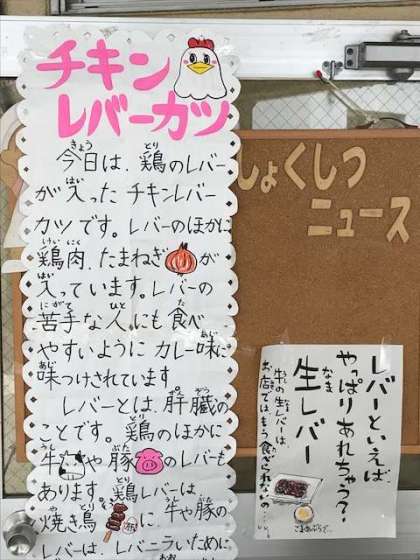 チキン
レバーカツ
今日は、鶏のレバー
が入ったチキンレバー
カツです。レバーのほかに
鶏肉、たまねぎが
入っています。レバーの
苦手な人にも食べ
やすいようにカレー味に
味つけされています
レバーとは、肝臓の
ことです。鶏のほかに
牛や豚のレバーも
あります。鶏レバーは、
焼き鳥に、牛や豚の
レバーは、レバニラいために
しょくしつ
ニュース
レバーといえば、
やっぱりあれちゃう？
生レバー
牛の生レバーは、
お店ではもう食べられないの…
ごまあぶらで…